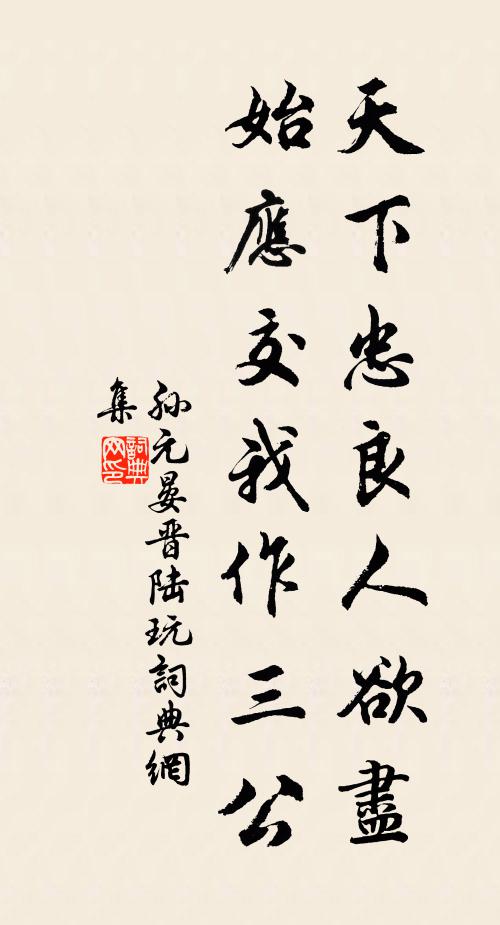 天下忠良人欲盡
始應交我作三公
孙元晏晋陆玩詞典網
集
詞典网印